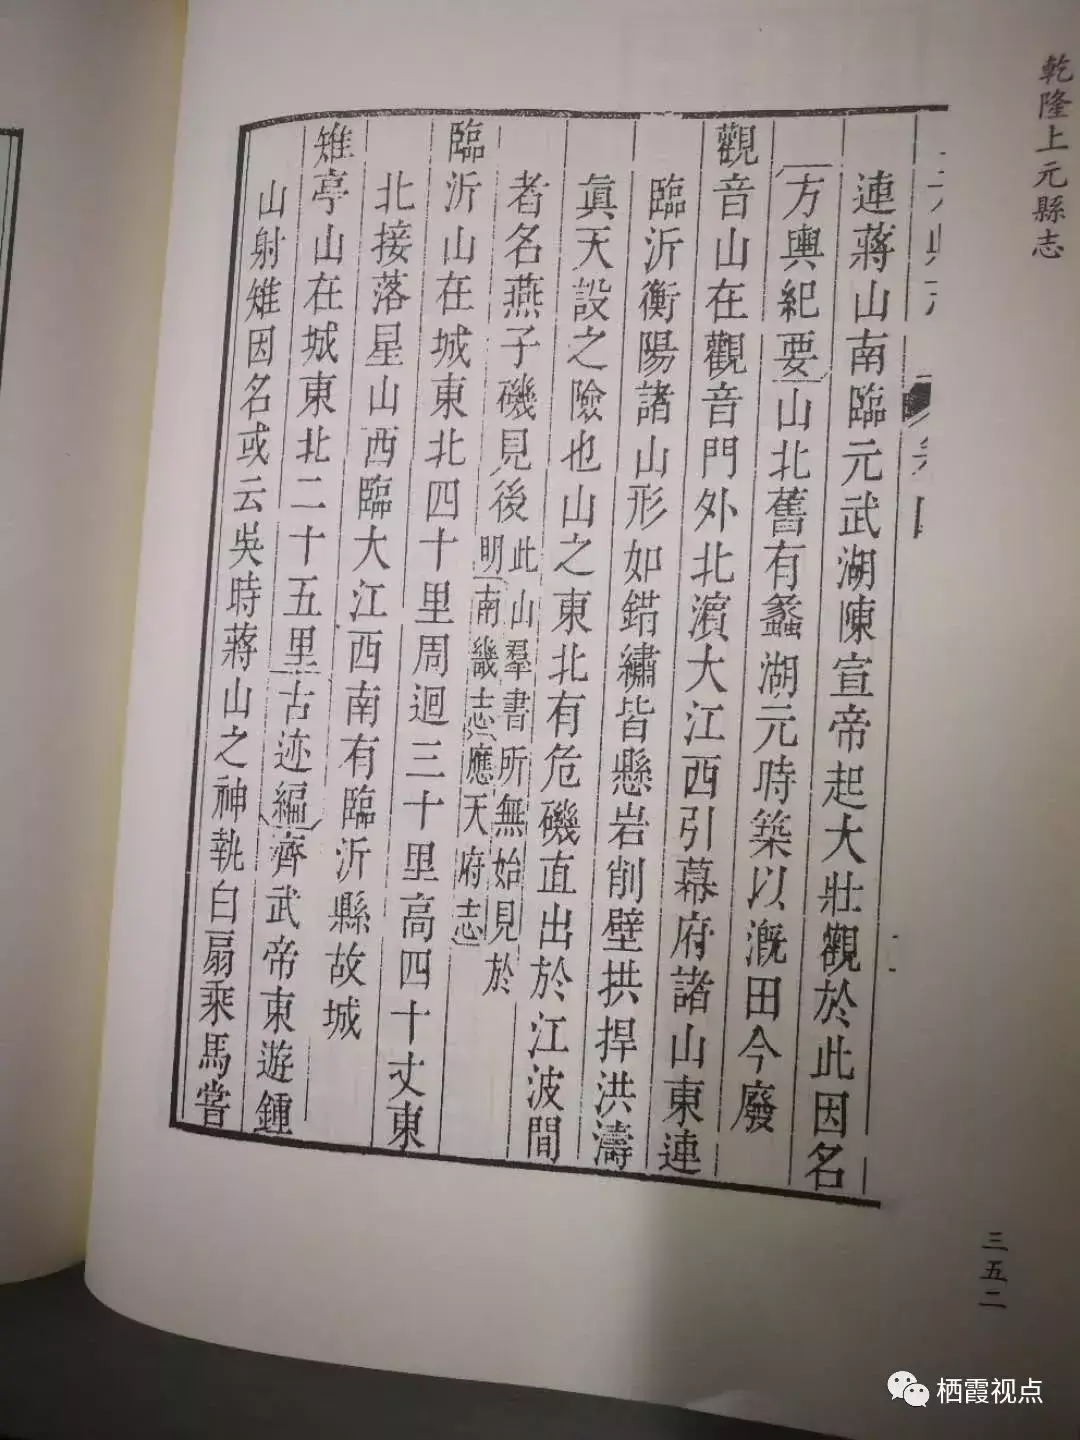 乾隆上元縣志
連蔣山南臨元武湖陳宣帝起大壯觀於此因名
方輿紀要山北舊有蠡湖元時築以溉田今廢
觀音山在觀音門外北濱大江西引幕府諸山東連
臨沂衡陽諸山形如錯繡皆懸岩削壁拱捍洪濤
眞天設之險也山之東北有危磯直出於江波間
者名燕子磯見後
此山羣書所無始見於
明南畿志應天府志
臨沂山在城東北四十里周迴三十里高四十丈東
北接落星山西臨大江西南有臨沂縣故城
雉亭山在城東北二十五里古迹編齊武帝東遊鍾
山射雉因名或云吳時蔣山之神執白扇乘馬嘗
三五二
栖霞视点